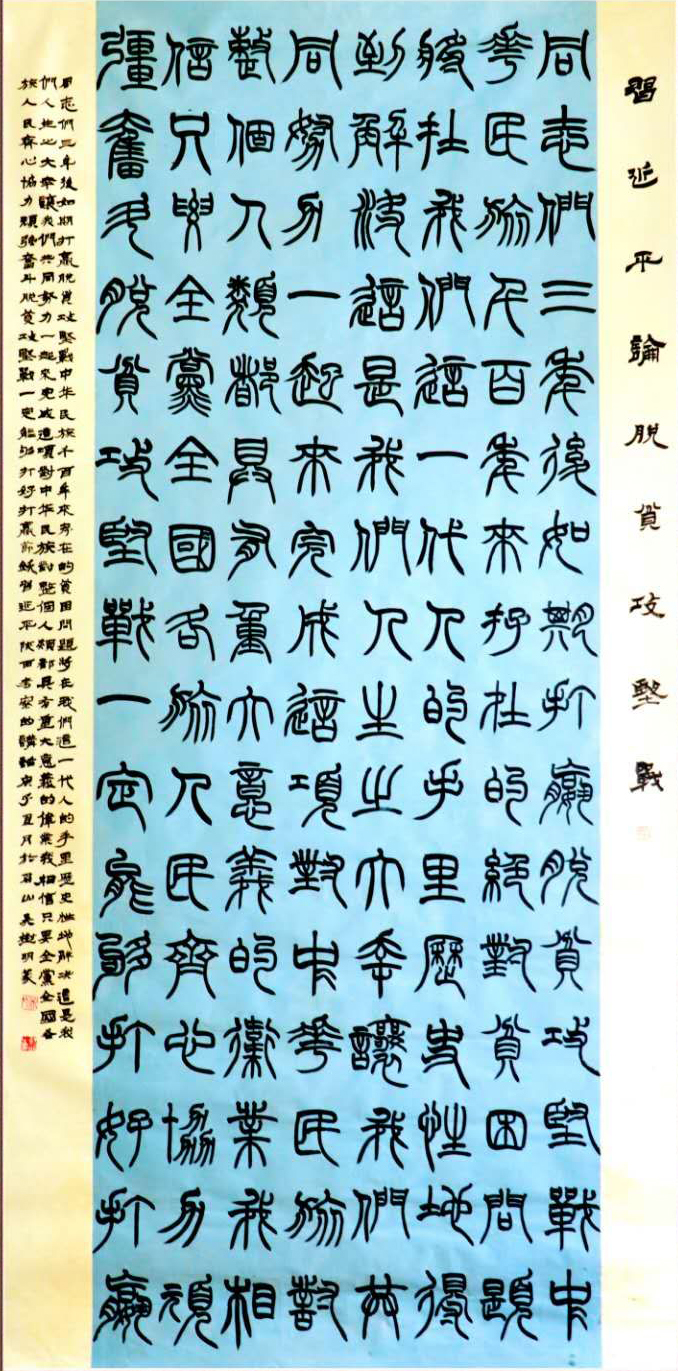 習近平論脫貧攻堅戰
同志們三年後如期打贏脫貧攻堅戰中
華民族千百年來存在的絕對貧困問題
將在我們這一代人的手里歷史性地得
到解決這是我們人生之大幸讓我們共
同努力一起來完成這項對中華民族對
整個人類都具有重大意義的偉業我相
信只要全黨全國各族人民齊心協力頑
彊奮斗脫貧攻堅戰一定能夠打好打贏
同志們三年後如期打贏脫貧攻堅戰中华民族千百年來存在的貧困問題將在我們這一代人的手里歷史性地解決這是我
們人生之大幸讓我們共同努力一起來完成這項對中华民族對整個人類都具有重大意義的偉業我相信只要全黨全國各
族人民齊心協力頑强奮斗脫貧攻堅戰一定能够打好打贏節錄習近平陝西安的講話庚子月於山吳樹明篆